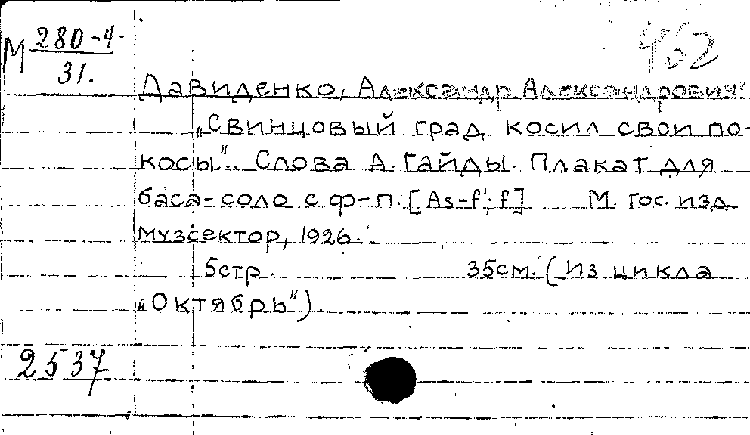 М 280-4
31.
452
Давиденко, Александр Александрович
„Свинцовый град косил свои по-
косы". Слова А. Гайды. Плакат для
баса-соло с ф-п. [As-f; f] М. Гос. изд.
музсектор, 1926.
5стр. 35см. (Из цикла
„Октябрь")
2537